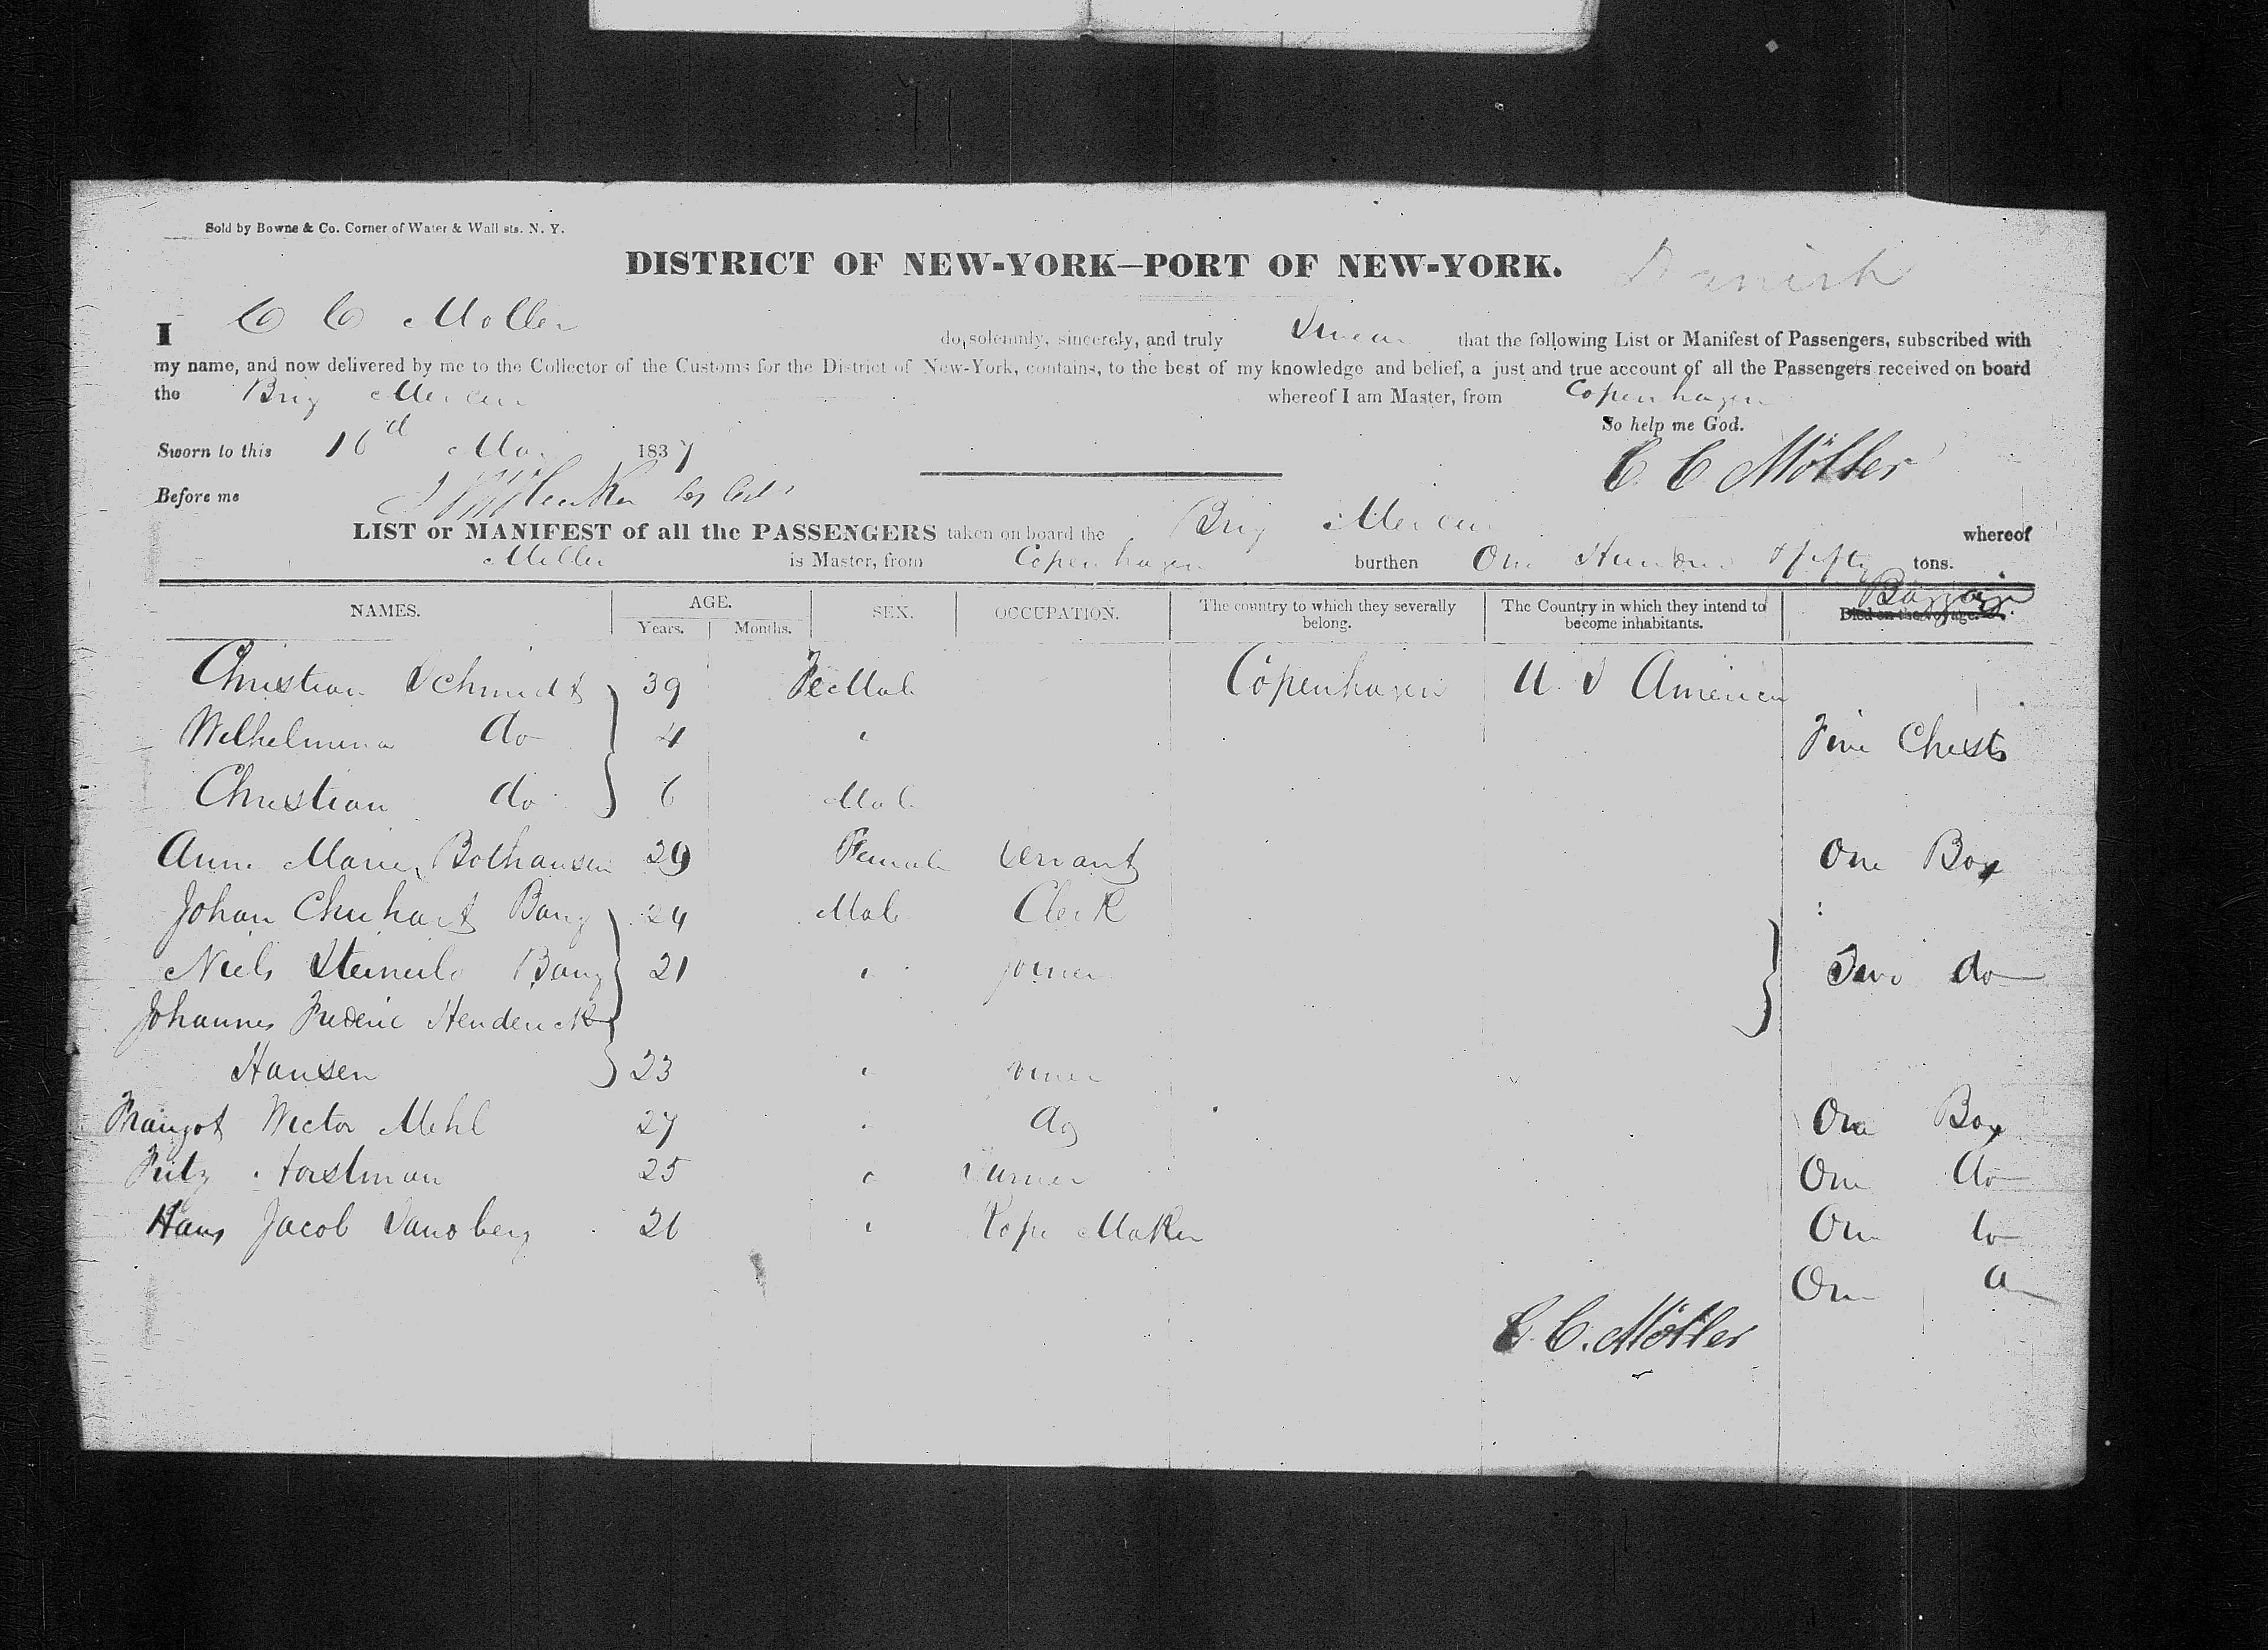 Sold by Bowne & Co. Corner of Water & Wall sts. N. Y.
DISTRICT OF NEW-YORK—PORT OF NEW-YORK. Danish
I C C Moller do, solemnly, sincerely, and truly Swear that the following List or Manifest of Passengers, subscribed with
my name, and now delivered by me to the Collector of the Customs for the District of New-York, contains, to the best of my knowledge and belief, a just and true account of all the Passengers received on board
the Brig whereof I am Master, from Copenhagen
So help me God.
Sworn to this 16d May 1837
C C Möller
Before me
LIST or MANIFEST of all the PASSENGERS taken on board the Brig whereof
Moller is Master, from Copenhagen burthen One Hundred & fifty tons.
NAMES. AGE. Years. Months. SEX. OCCUPATION. The country to which they severally belong. The Country in which they intend to become inhabitants. Died on the voyage. Baggage
Christian Schmidt 39 FeMale Copenhagen U. S America
Wilhelmina do 4 " Five Chests
Christian do 6 Male
Anne Marie Bolhausen 29 Female Servant One Box
Johan Bang 24 Male Clerk
Niels Bang 21 " Joiner Two do
Johannes Frederic Henderick
Hansen 23 "
Wictor Mehl 27 " do One Box
Fritz Horstman 25 " One do
Hans Jacob 26 " Rope Maker One do
One do
C. C. Möller